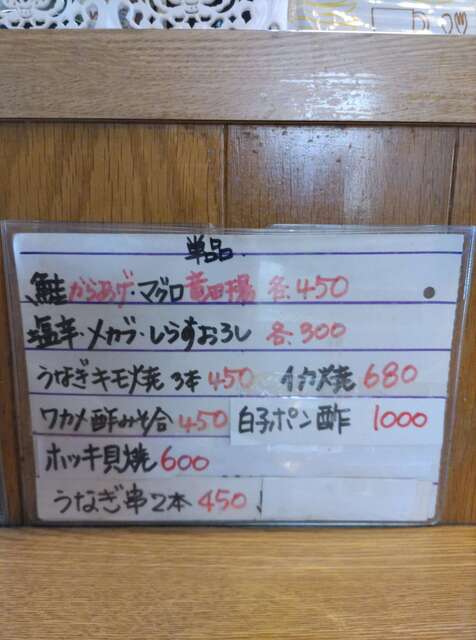 単品
鮭からあげ・マグロ竜田揚 各450
塩辛・メカブ・しらすおろし 各300
うなぎキモ焼 3本 450 イカ焼 680
ワカメ酢みそ合 450 白子ポン酢 1000
ホッキ貝焼 600
うなぎ串2本 450